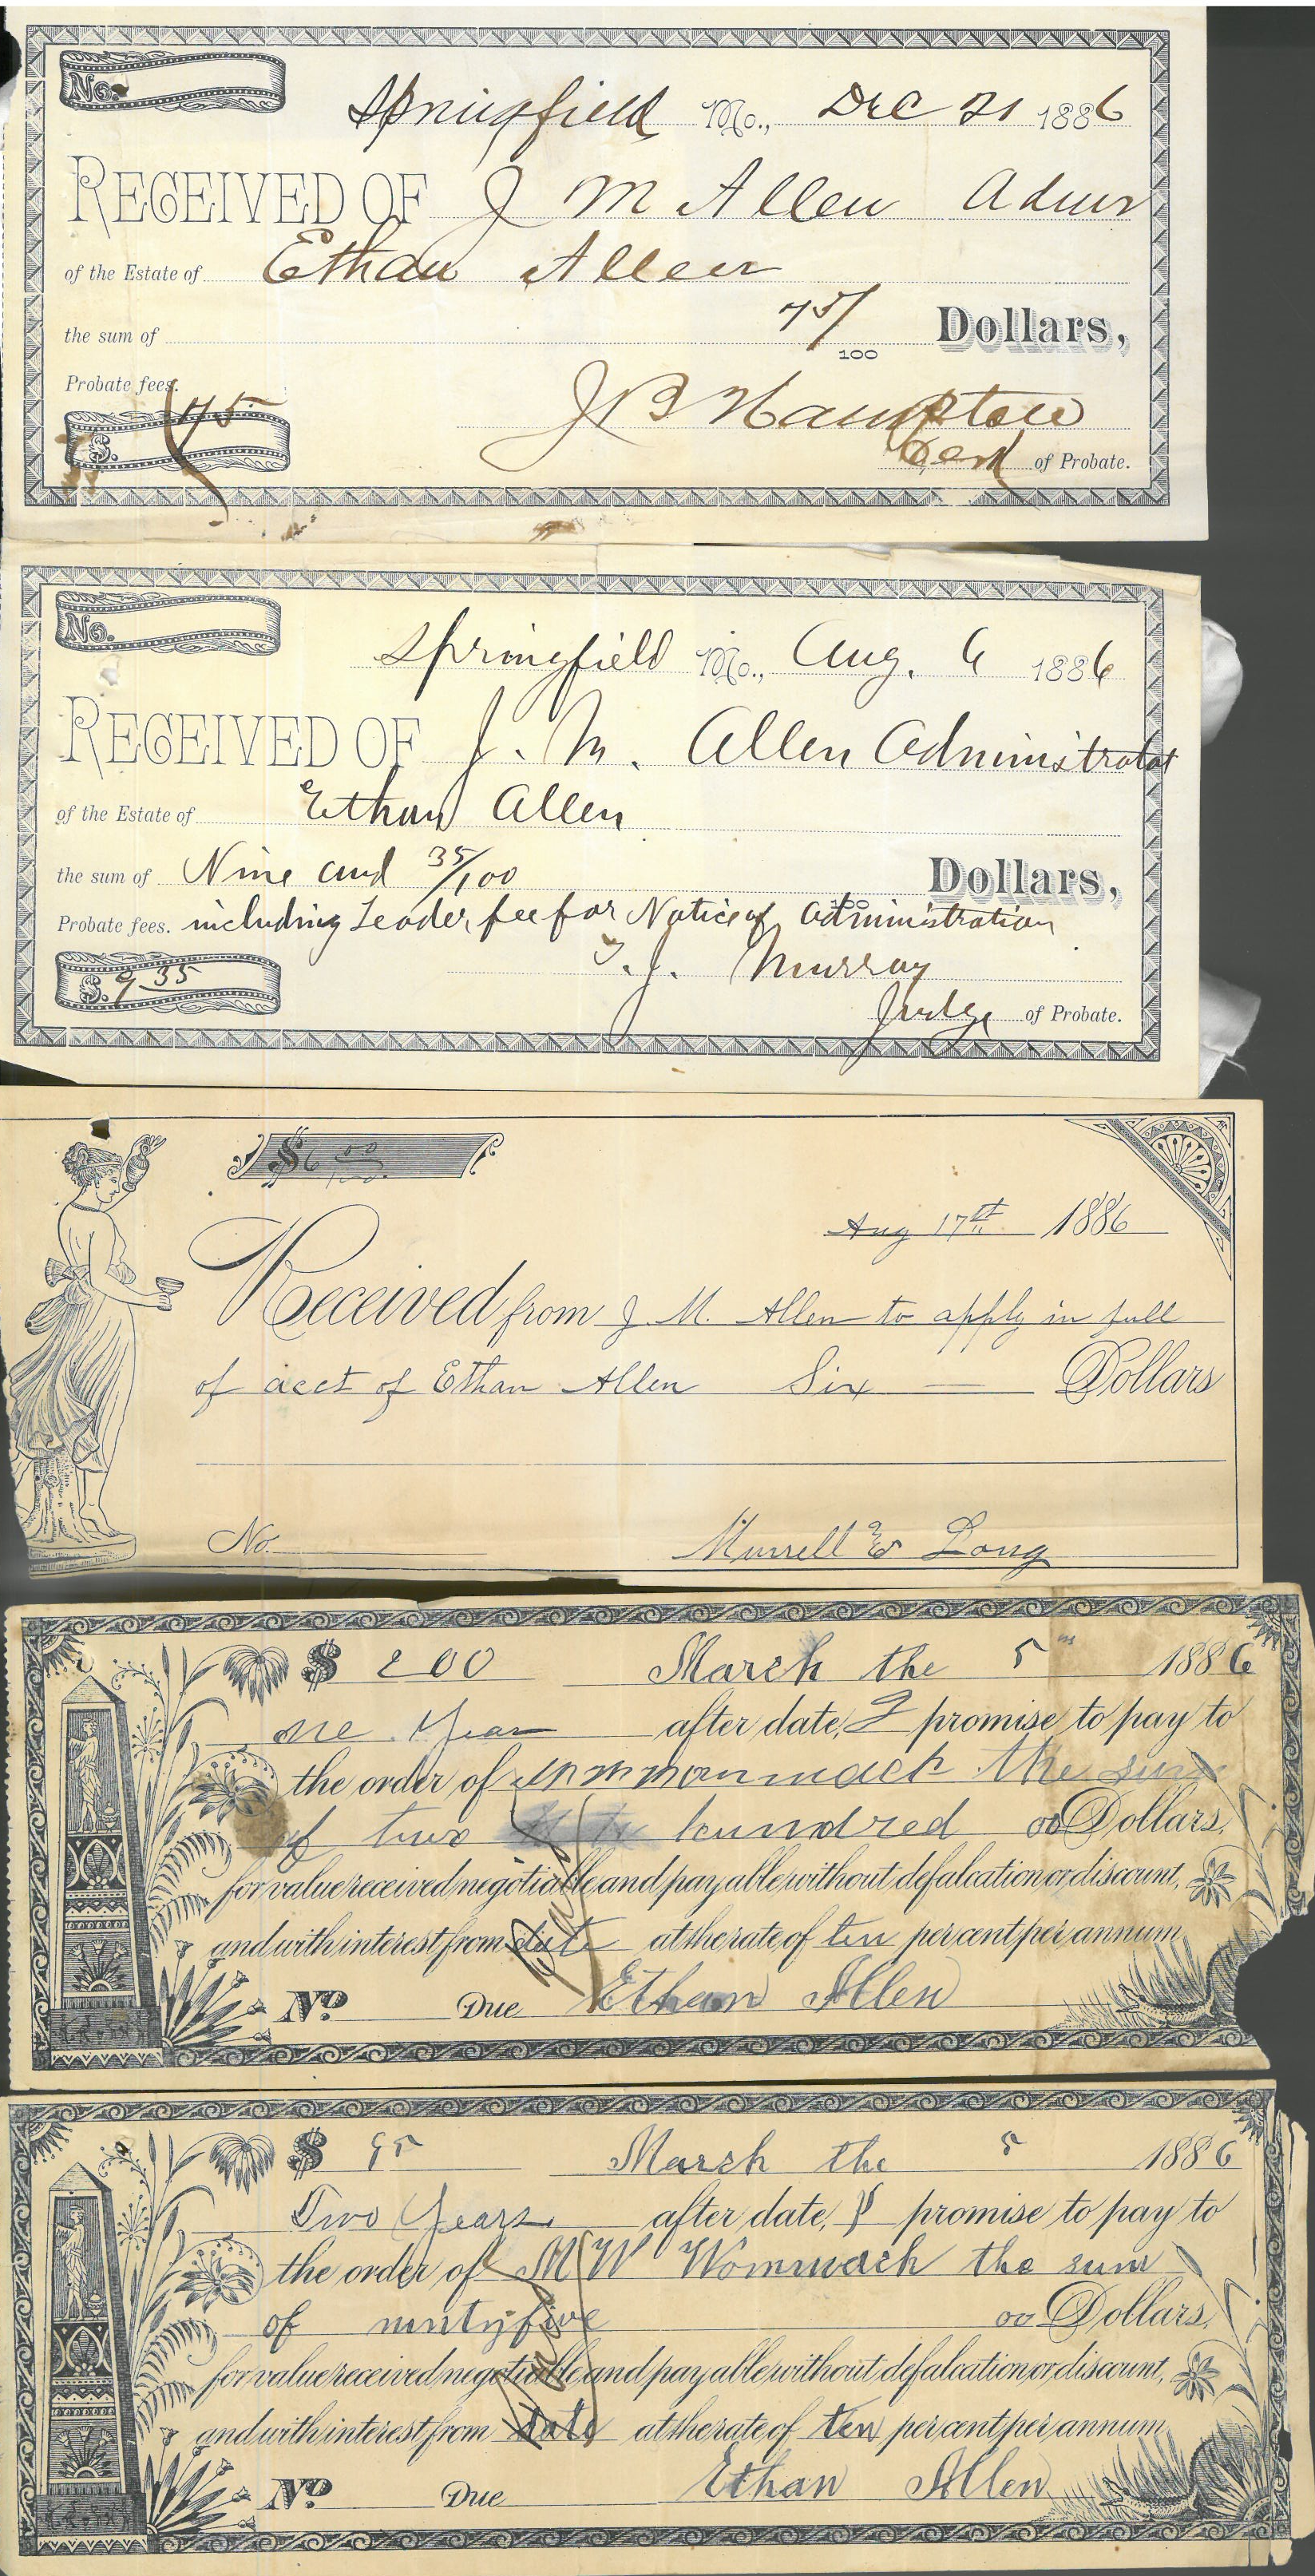 No.
Springfield Mo., Dec 21 1886
RECEIVED OF J M Allen Admr
of the Estate of Ethan Allen
the sum of 75/100 Dollars,
Probate fees.
$. 75
J B Hampton
Clerk of Probate.
No.
Springfield Mo., Aug. 6 1886
RECEIVED OF J. M. Allen Administrator
of the Estate of Ethan Allen
the sum of Nine and 35/100 Dollars,
Probate fees. including Leader fee for Notice of Administration
$. 9.35
T. J. Murray
Judge of Probate.
$6 00/100
Aug 17th 1886
Received from J. M. Allen to apply in full
of acct of Ethan Allen Six — Dollars
No.
Murrell & Long
$ 200 March the 5 1886
one Year after date, I promise to pay to
the order of the sum
of two hundred 00 Dollars,
for value received negotiable and payable without defalcation or discount,
and with interest from date at the rate of ten per cent per annum
No Due Ethan Allen
$ 95 March the 5 1886
Two Years after date, I promise to pay to
the order of M W Wommack the sum
of nintyfive 00 Dollars,
for value received negotiable and payable without defalcation or discount,
and with interest from date at the rate of ten per cent per annum
No Due Ethan Allen